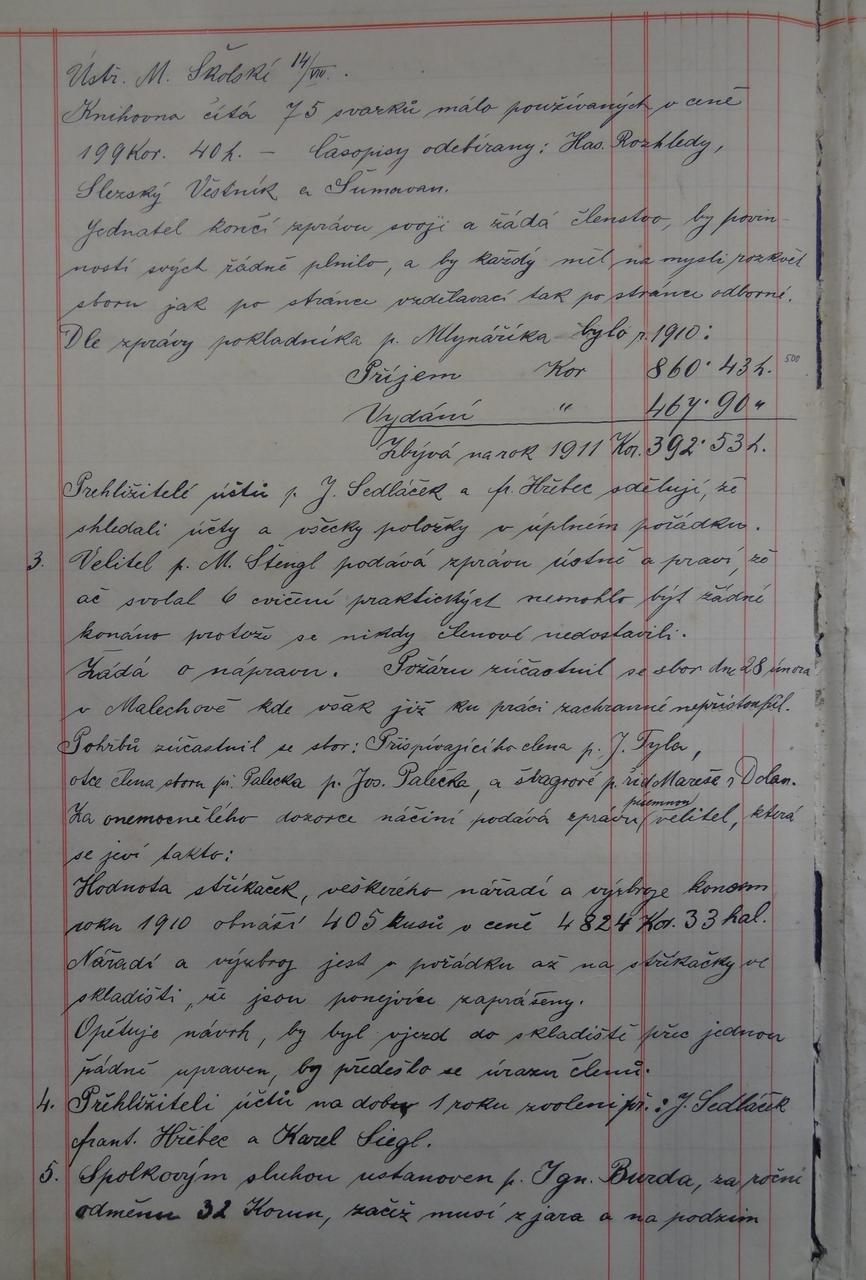 Ústř. M. Školské 14/VIII.
Knihovna čítá 75 svazků málo používaných v ceně
199 Kor. 40 h. – Časopisy odebírány: Has. Rozhledy,
Slezský Věstník a Šumavan.
Jednatel končí zprávu svoji a žádá členstvo, by povin-
ností svých řádně plnilo, a by každý měl na mysli rozkvět
sboru jak po stránce vzdělavací tak po stránce odborné.
Dle zprávy pokladníka p. Mlynáříka bylo r. 1910:
Příjem Kor 860·43 h. 500
Vydání " 467·90 "
Zbývá na rok 1911 Kor. 392·53 h.
Přehlížitelé účtů p. J. Sedláček a fr. Hřebec sdělují, že
shledali účty a všecky položky v úplném pořádku.
3. Velitel p. M. Štengl podává zprávu ústně a praví, že
ač svolal 6 cvičení praktických nemohlo být žádné
konáno protože se nikdy členové nedostavili.
Žádá o nápravu. Požáru zúčastnil se sbor dne 28 února
v Malechově kde však již ku práci zachranné nepřistoupil.
Pohřbů zúčastnil se sbor: Přispívajícího člena p. J. Tyla,
otce člena sboru p. Palečka p. Jos. Palečka, a švagrové p. říd Mareše z Dolan.
Za onemocnělého dozorce náčiní podává zprávu písemnou velitel, která
se jeví takto:
Hodnota stříkaček, veškerého nářadí a výzbroje koncem
roku 1910 obnáší 405 kusů v ceně 4824 Kor. 33 hal.
Nářadí a výzbroj jest v pořádku až na stříkačky ve
skladišti, že jsou ponejvíce zaprášeny.
Opětuje návrh, by byl vjezd do skladiště přec jednou
řádně upraven, by předešlo se úrazu členů.
4. Přehlížiteli účtů na dobu 1 roku zvoleni pp.: J. Sedláček
frant. Hřebec a Karel Siegl.
5. Spolkovým sluhou ustanoven p. Ign. Burda, za roční
odměnu 32 Korun, začíž musí z jara a na podzim